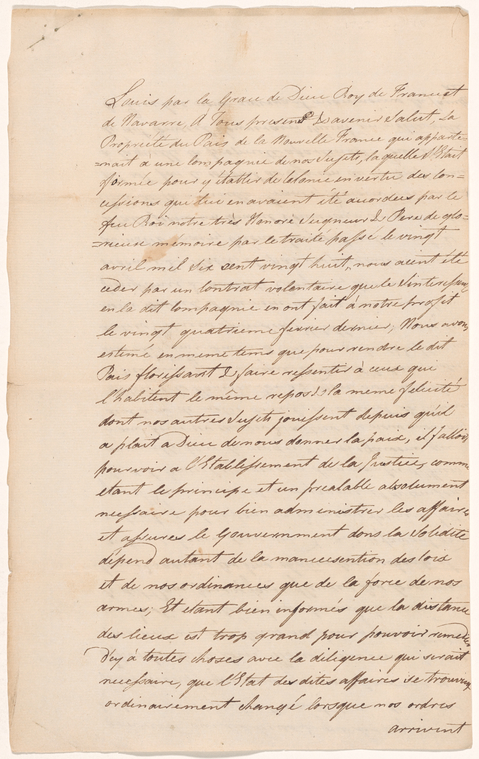 Louis par la Grace de Dieu Roy de France et
de Navarre, A Tous presens & avenir Salut. La
Propriété du Païs de la Nouvelle France qui apparte-
=nait a une Compagnie de nos Sujets, laquelle S'etait
formée pour y établir de Colonie en vertu des Con-
cessions qui leu en avaient été accordees par le
feu Roi notre très Honoré Seigneur & Pere de glo-
=rieuse mémoire par le traité passé le vingt
avril mil six cent vingt huit, nous aient été
céder par un Contrat volontaire que le's interessés
en la dit Compagnie en ont fait à notre profit
le vingt quatrieme fevrier dernier, Nous avons
estimé en meme tems que pour rendre le dit
Païs florissant & faire ressentir à ceux que
l'habitent le même repos & la meme felicité
dont nos autres Sujets jouissent depuis qu'il
a plait a Dieu de nous donner la paix, il falloit
pourvoir a l'Etablissement de la Justice, comme
etant le principe et un prealable absolument
necessaire pour bien administrer les affaires
et assurer le Gouvernment dons la Solidité
dépend autant de la
et de nos ordinances que de la force de nos
armes; Et etant bien informés que la distance
des lieux est trop grand pour pouvoir remedier
d'ey à toutes choses avec la diligence qui serait
necessaire, que l'Etat des dites affaires se trouvant
ordinairement changé lorsque nos ordres
arrivint